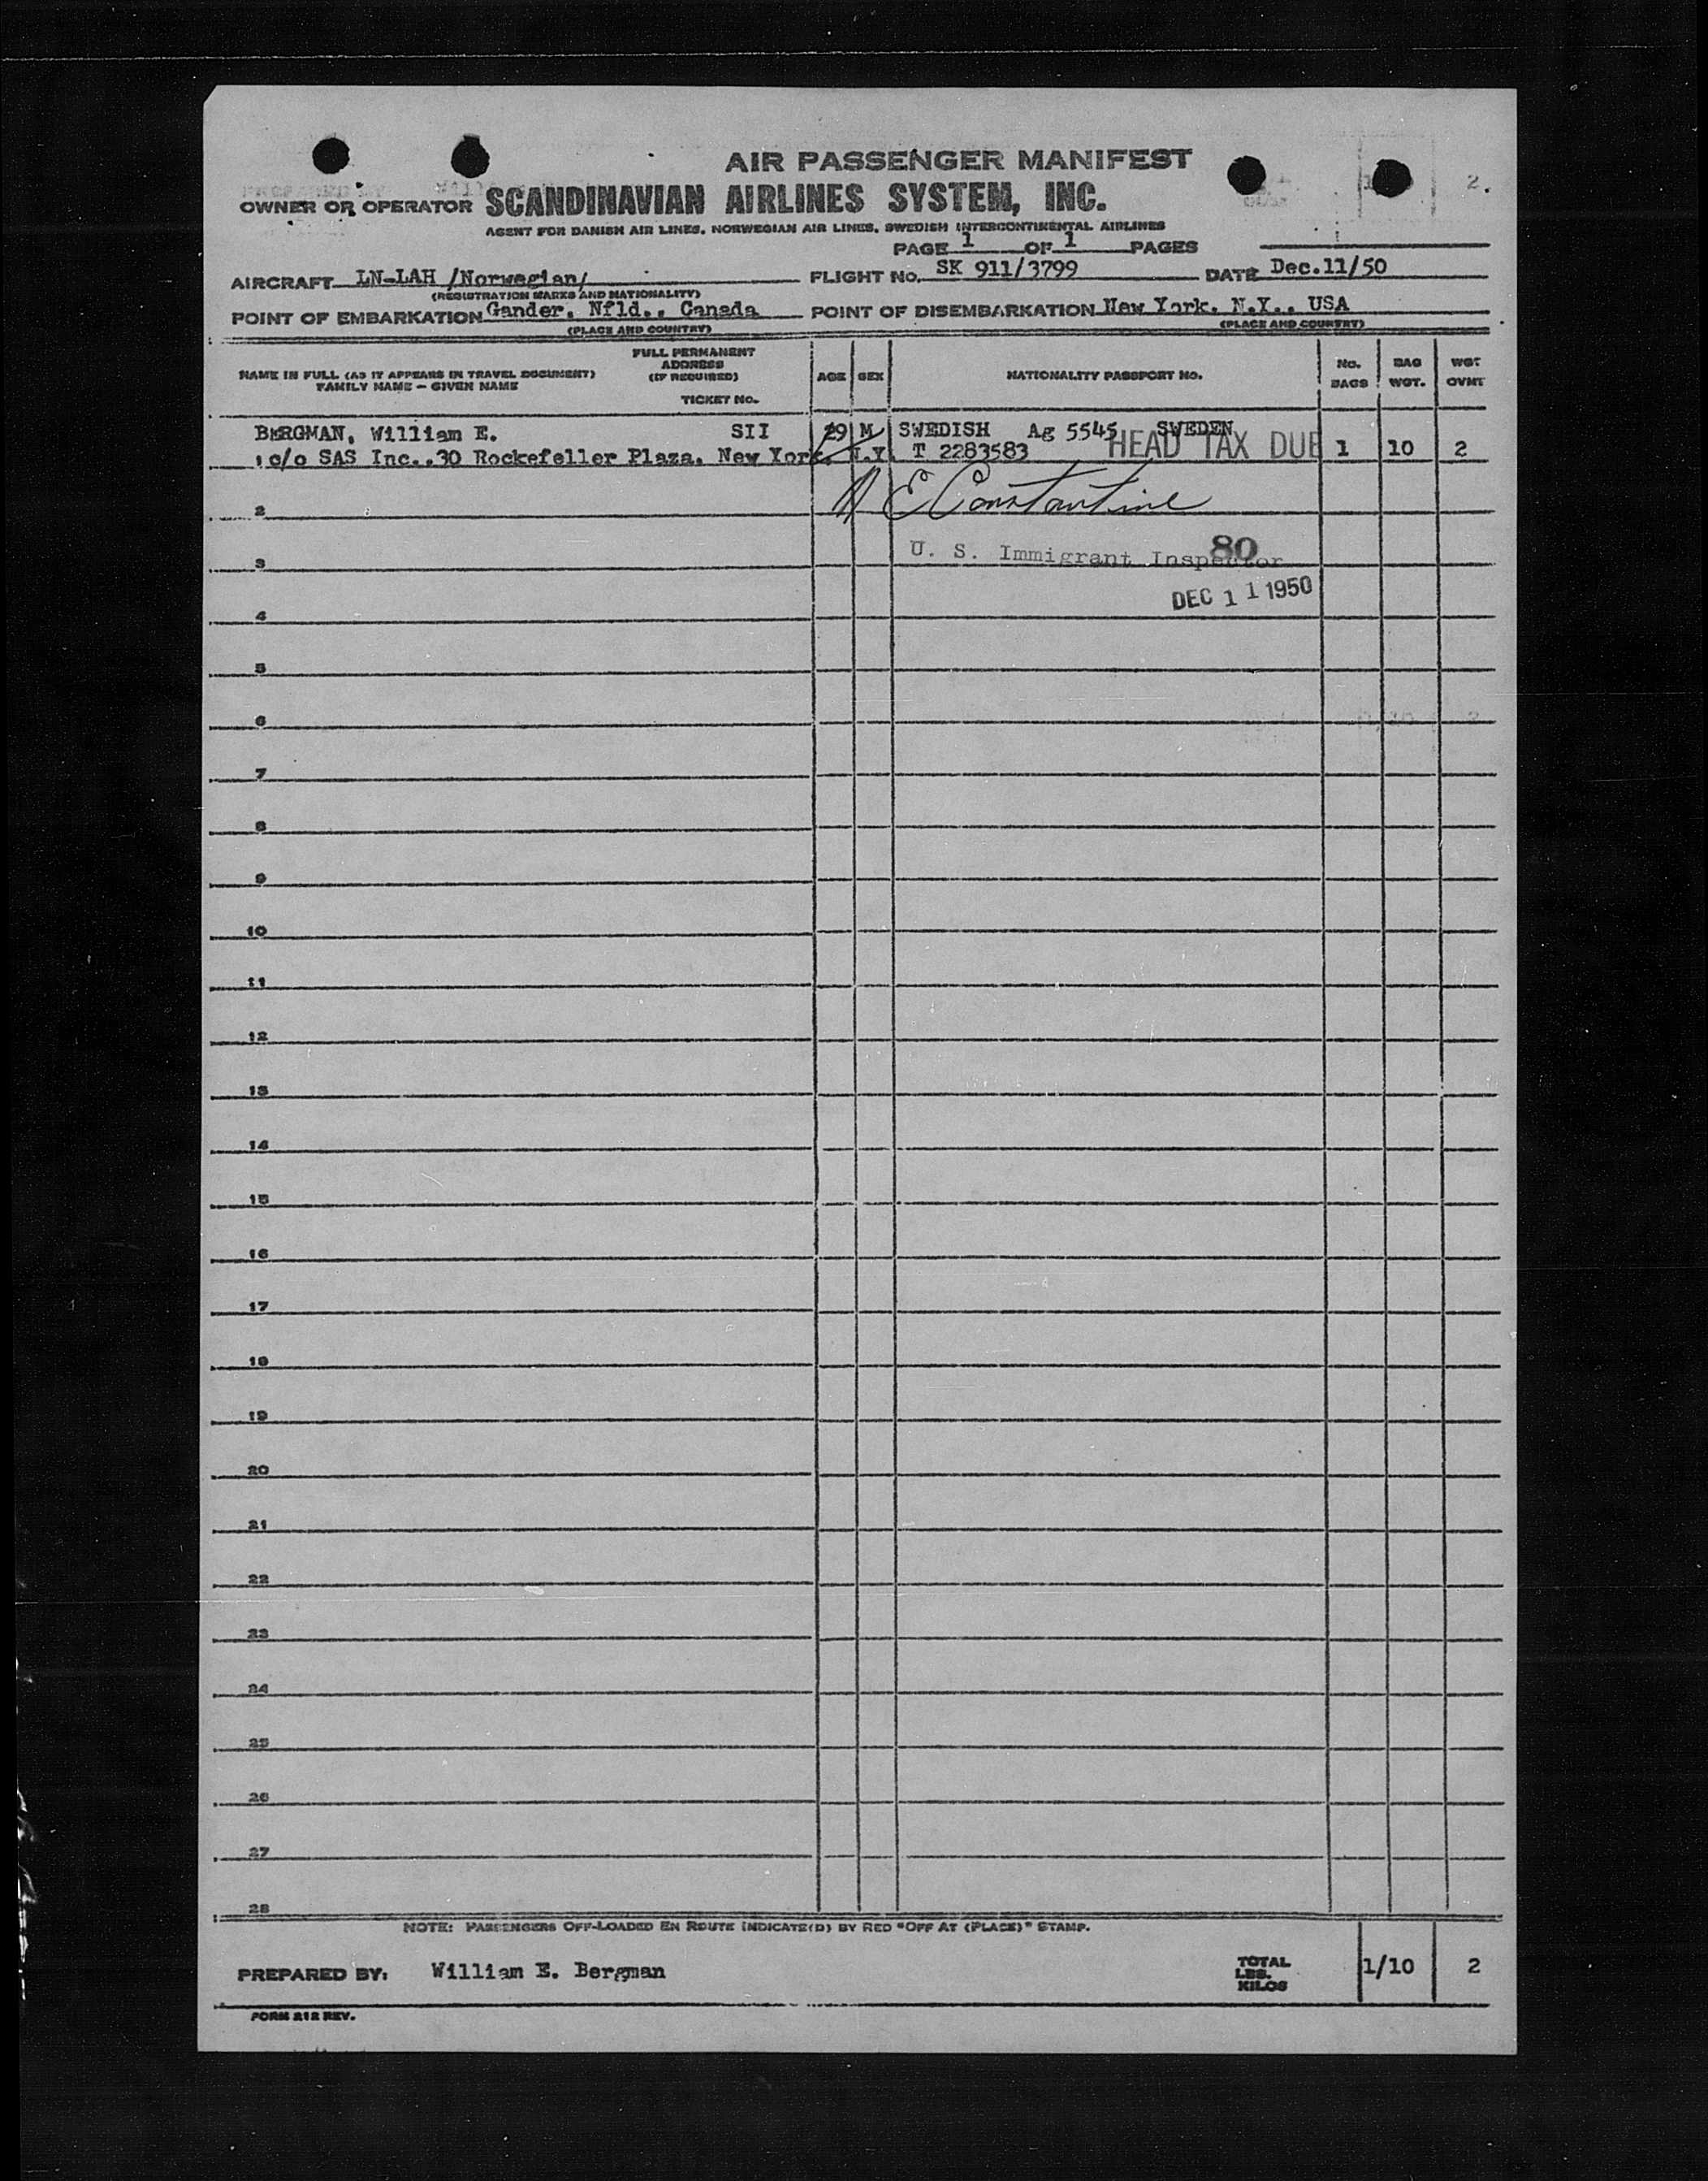 AIR PASSENGER MANIFEST
2.
OWNER OR OPERATOR SCANDINAVIAN AIRLINES SYSTEM, INC.
AGENT FOR DANISH AIR LINES, NORWEGIAN AIR LINES, SWEDISH INTERCONTINENTAL AIRLINES
PAGE 1 OF 1 PAGES
AIRCRAFT LN-LAH /Norwegian/ FLIGHT No. SK 911/3799 DATE Dec.11/50
(REGISTRATION MARKS AND NATIONALITY)
POINT OF EMBARKATION Gander, Nfld., Canada POINT OF DISEMBARKATION New York, N.Y., USA
(PLACE AND COUNTRY) (PLACE AND COUNTRY)
NAME IN FULL (AS IT APPEARS IN TRAVEL DOCUMENT)
FAMILY NAME – GIVEN NAME
FULL PERMANENT
ADDRESS
(IF REQUIRED)
TICKET No.
AGE SEX NATIONALITY PASSPORT No.
No.
BAGS
BAG
WGT.
WGT
OVNT
BERGMAN, William E. SII 29 M SWEDISH Ag 5545 SWEDEN
c/o SAS Inc..30 Rockefeller Plaza, New York, N.Y. T 2283583 HEAD TAX DUE 1 10 2
E Constantine
2
U. S. Immigrant Inspector 80
3
DEC 11 1950
4
5
6
7
8
9
10
11
12
13
14
15
16
17
18
19
20
21
22
23
24
25
26
27
28
NOTE: PASSENGERS OFF-LOADED EN ROUTE INDICATE(D) BY RED "OFF AT (PLACE)" STAMP.
PREPARED BY: William E. Bergman
TOTAL
LBS.
KILOS
1/10 2
FORM 212 REV.